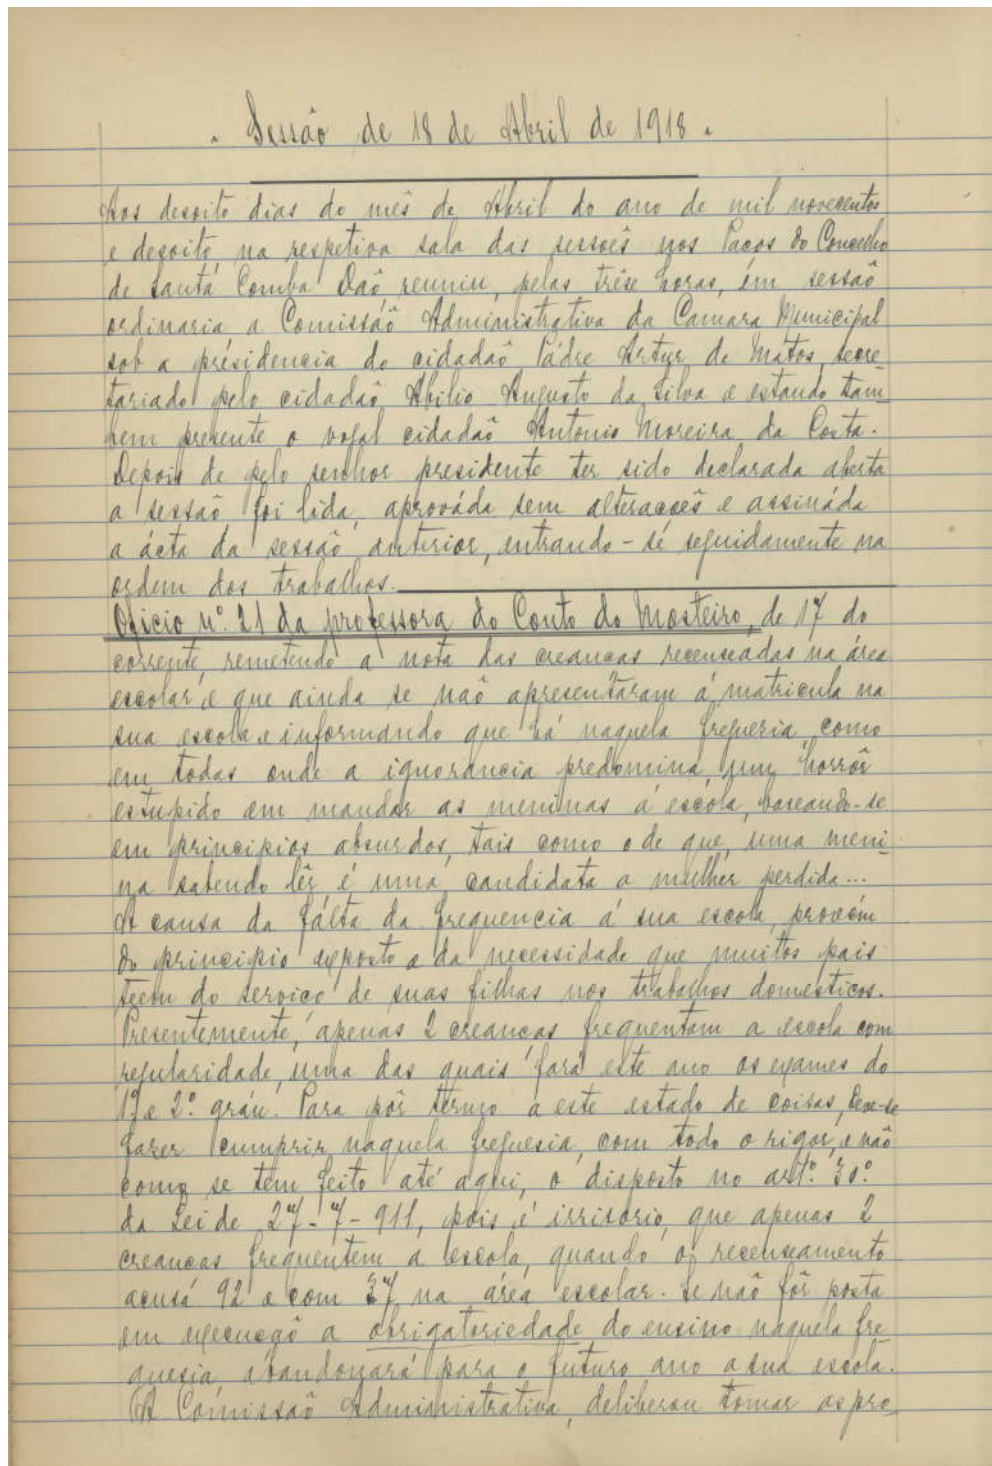 . Sessão de 18 de Abril de 1918 .
Aos desoito dias do mês de Abril do ano de mil novecentos
e desoito, na respetiva sala das sessoês nos Paços do Concelho
de Santa Comba Daõ, reuniu, pelas trêse horas, em sessaõ
ordinaria a Comissaõ Administrativa da Camara Municipal
sob a presidencia do cidadaõ Pádre Artur de Matos, secre
tariado pelo cidadaõ Abilio Augusto da Silva e estando tam
bem presente o vogal cidadaõ Antonio Moreira da Costa.
Depois de pelo senhor presidente ter sido declarada aberta
a sessaõ foi lida, aprováda sem alteraçoês e assináda
a ácta da sessaõ anterior, entrando-se seguidamente na
ordem dos trabalhos.
Oficio nº. 21 da professora do Couto do Mosteiro, de 17 do
corrente, remetendo a nota das creanças recenseadas na área
escolar e que ainda se naõ apresentáram á matricula na
sua escola e informando que há naquela frequeria, como
em todas onde a ignorancia predomina, um horrôr
estupido em mandar as meninas á escóla, baseando-se
em principios absurdos, tais como o de que, uma meni-
na sabendo lêr é uma candidata a mulher perdida...
A causa da fálta da frequencia á sua escola, provém
do principio exposto e da necessidade que muitos pais
teem do serviço de suas filhas nos trabalhos domesticos.
Presentemente, apenas 2 creanças frequentam a escola com
regularidade, uma das quais fará este ano os exames do
1º e 2º. gráu. Para pôr têrmo a este estado de coisas, deve-se
fazer cumprir naquela freguesia, com todo o rigor, e naõ
como se tem feito até aqui, o disposto no artº. 30º.
da Lei de 27-7-911, pois é irrisorio, que apenas 2
creanças frequentem a escola, quando o recenseamento
acusá 92 e com 37 na área escolar. Se naõ fôr posta
em execuçaõ a obrigatoriedade do ensino naquela fre
guesia, abandonará para o futuro ano a sua escola.
A Comissaõ Administrativa, deliberou tomar as pro-